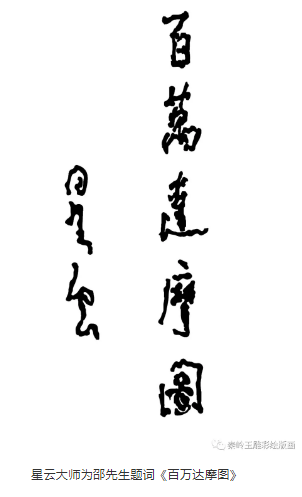 百萬達摩圖
星雲
秦岭王酷彩绘版画
星云大师为邵先生题词《百万达摩图》